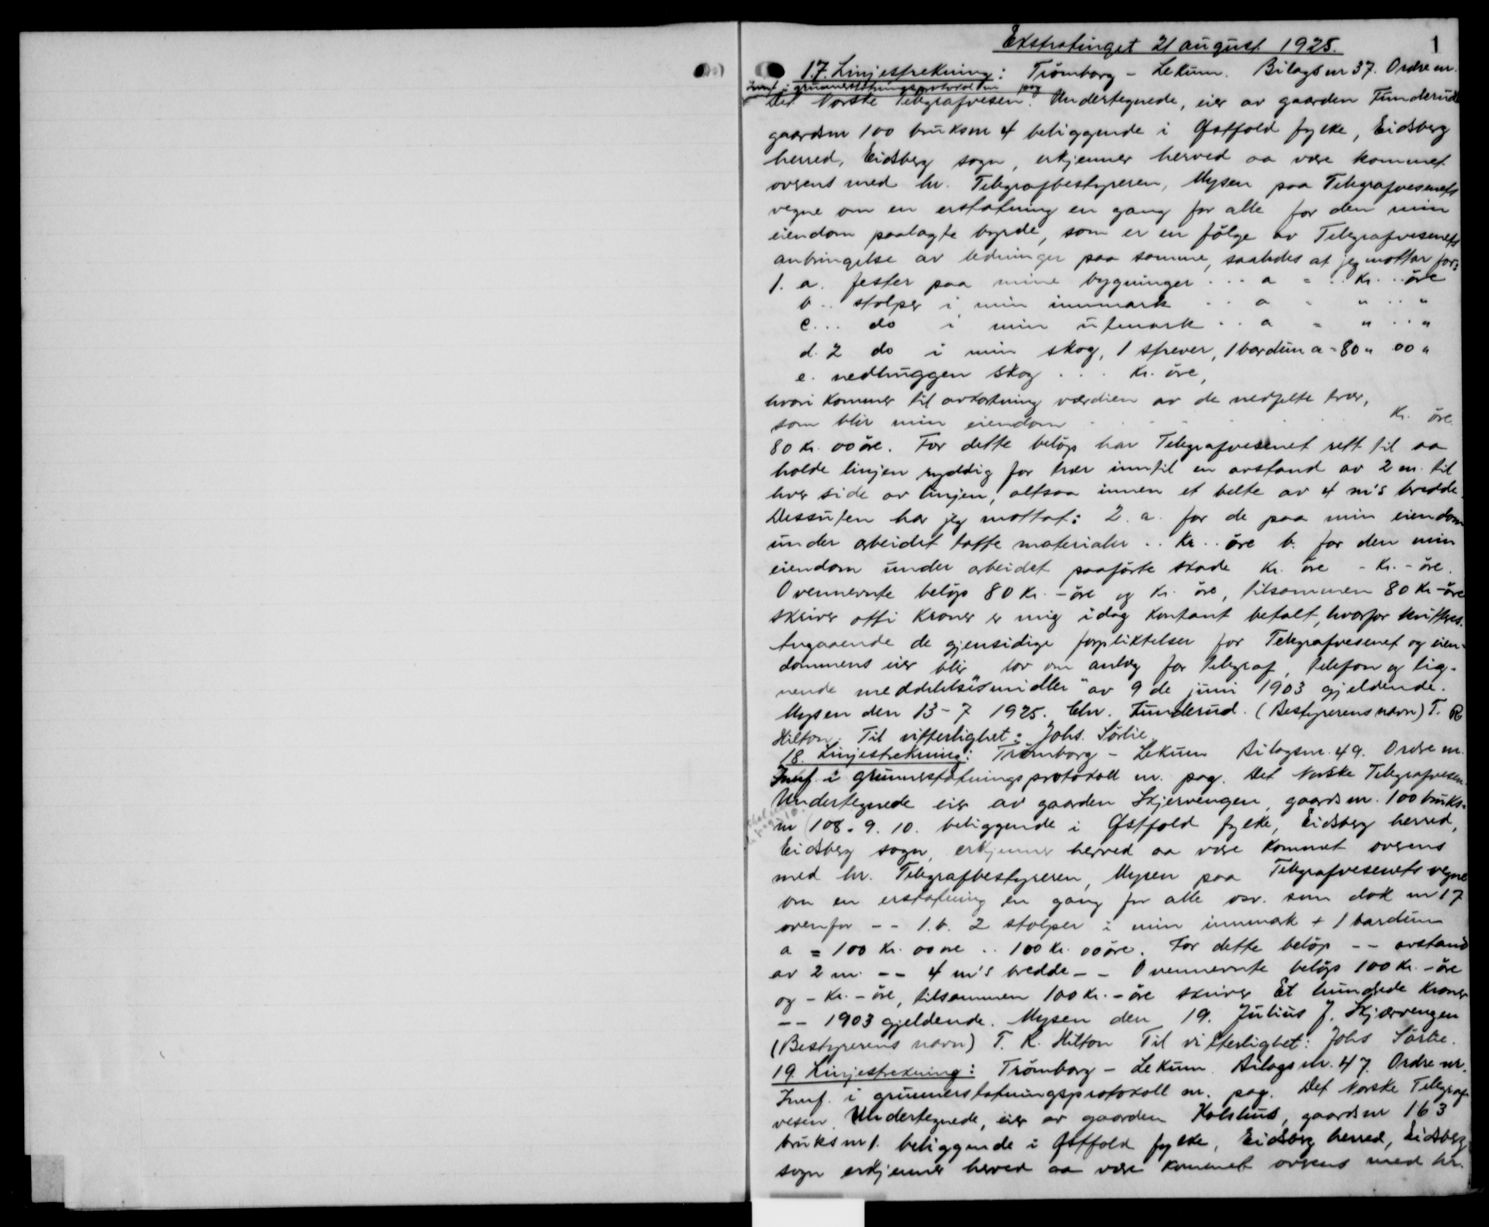 Ekstratinget 21 august 1925.
1
17. Linjestrekning: Trömborg - Lekum. Bilagsnr 37. Ordre nr.
Innf. i grunnerstatningsprotokoll nr pag
Det Norske Telegrafvesen. Undertegnede, eier av gaarden Funderud
gaardsnr 100 bruksnr 4 beliggende i Østfold fylke, Eidsberg
herred, Eidsberg sogn, erkjenner herved aa være kommet
overens med hr. Telegrafbestyreren, Mysen paa Telegrafvesenets
vegne om en erstatning en gang for alle for den min
eiendom paalagte byrde, som er en følge av Telegrafvesenets
anbringelse av ledninger paa samme, saaledes at jeg mottar for:
1. a. fester paa mine bygninger . . . a = . . Kr. . . öre
b. . stolper i min innmark . . a = " . . "
c. . . do i min utmark . . a = " . . "
d. 2 do i min skog, 1 strever, 1 bardun a = 80 " 00 "
e. nedhuggen skog . . . Kr. öre,
hvori kommer til avkortning værdien av de nedfelte trær,
som blir min eiendom . . . . . . . Kr. öre.
80 Kr. 00 öre. For dette beløp har Telegrafvesenet rett til aa
holde linjen ryddig for trær inntil en avstand av 2 m. til
hver side av linjen, altsaa innen et belte av 4 m's bredde.
Dessuten har jeg mottat: 2. a. for de paa min eiendom
under arbeidet tatte materialer . . Kr. . . öre b. for den min
eiendom under arbeidet paaførte skade Kr. öre - Kr. - öre.
Ovennevnte beløp 80 Kr. - öre og Kr. öre, tilsammen 80 Kr - öre
skriver otti Kroner er mig idag kontant betalt, hvorfor kvitteres.
Angaaende de gjensidige forpliktelser for Telegrafvesenet og eien-
dommens eier blir lov om anlæg for telegraf, telefon og lig-
nende meddelelsesmidler" av 9de juni 1903 gjeldende.
Mysen den 13 - 7 1925. Chr. Funderud. (Bestyrerens navn) T. R.
Hilton. Til vitterlighet: Johs. Sörlie.
18. Linjestrekning: Trömborg - Lekum Bilagsnr. 49. Ordre nr.
Innf. i grunnerstatningsprotokoll nr. pag. Det Norske Telegrafvesen
Undertegnede eier av gaarden Skjervengen, gaardsnr. 100 bruks-
nr (108. 9. 10. beliggende i Østfold fylke, Eidsberg herred,
Eidsberg sogn, erkjenner herved aa være kommet overens
med hr. Telegrafbestyreren, Mysen paa Telegrafvesenets vegne
om en erstatning en gang for alle osv. som dok nr 17
ovenfor - - 1. b. 2 stolper i min innmark + 1 bardun
a = 100 Kr. 00 öre . . 100 Kr. 00 öre. For dette beløp - - avstand
av 2 m. - - 4 m's bredde - - Ovennevnte beløp 100 Kr. - öre
og - Kr. - öre, tilsammen 100 Kr. - öre skriver Et hundrede Kroner
- - 1903 gjeldende. Mysen den 19. Julius J. Skjærvengen
(Bestyrerens navn) T. R. Hilton Til vitterlighet: Johs Sörlie.
19. Linjestrekning: Trömborg - Lekum. Bilagsnr. 47. Ordre nr.
Innf. i grunnerstatningsprotokoll nr. pag. Det Norske Telegraf-
vesen. Undertegnede, eier av gaarden Kolshus, gaardsnr 163
bruksnr 1. beliggende i Østfold fylke, Eidsberg herred, Eidsberg
sogn erkjenner herved aa være kommet overens med hr.